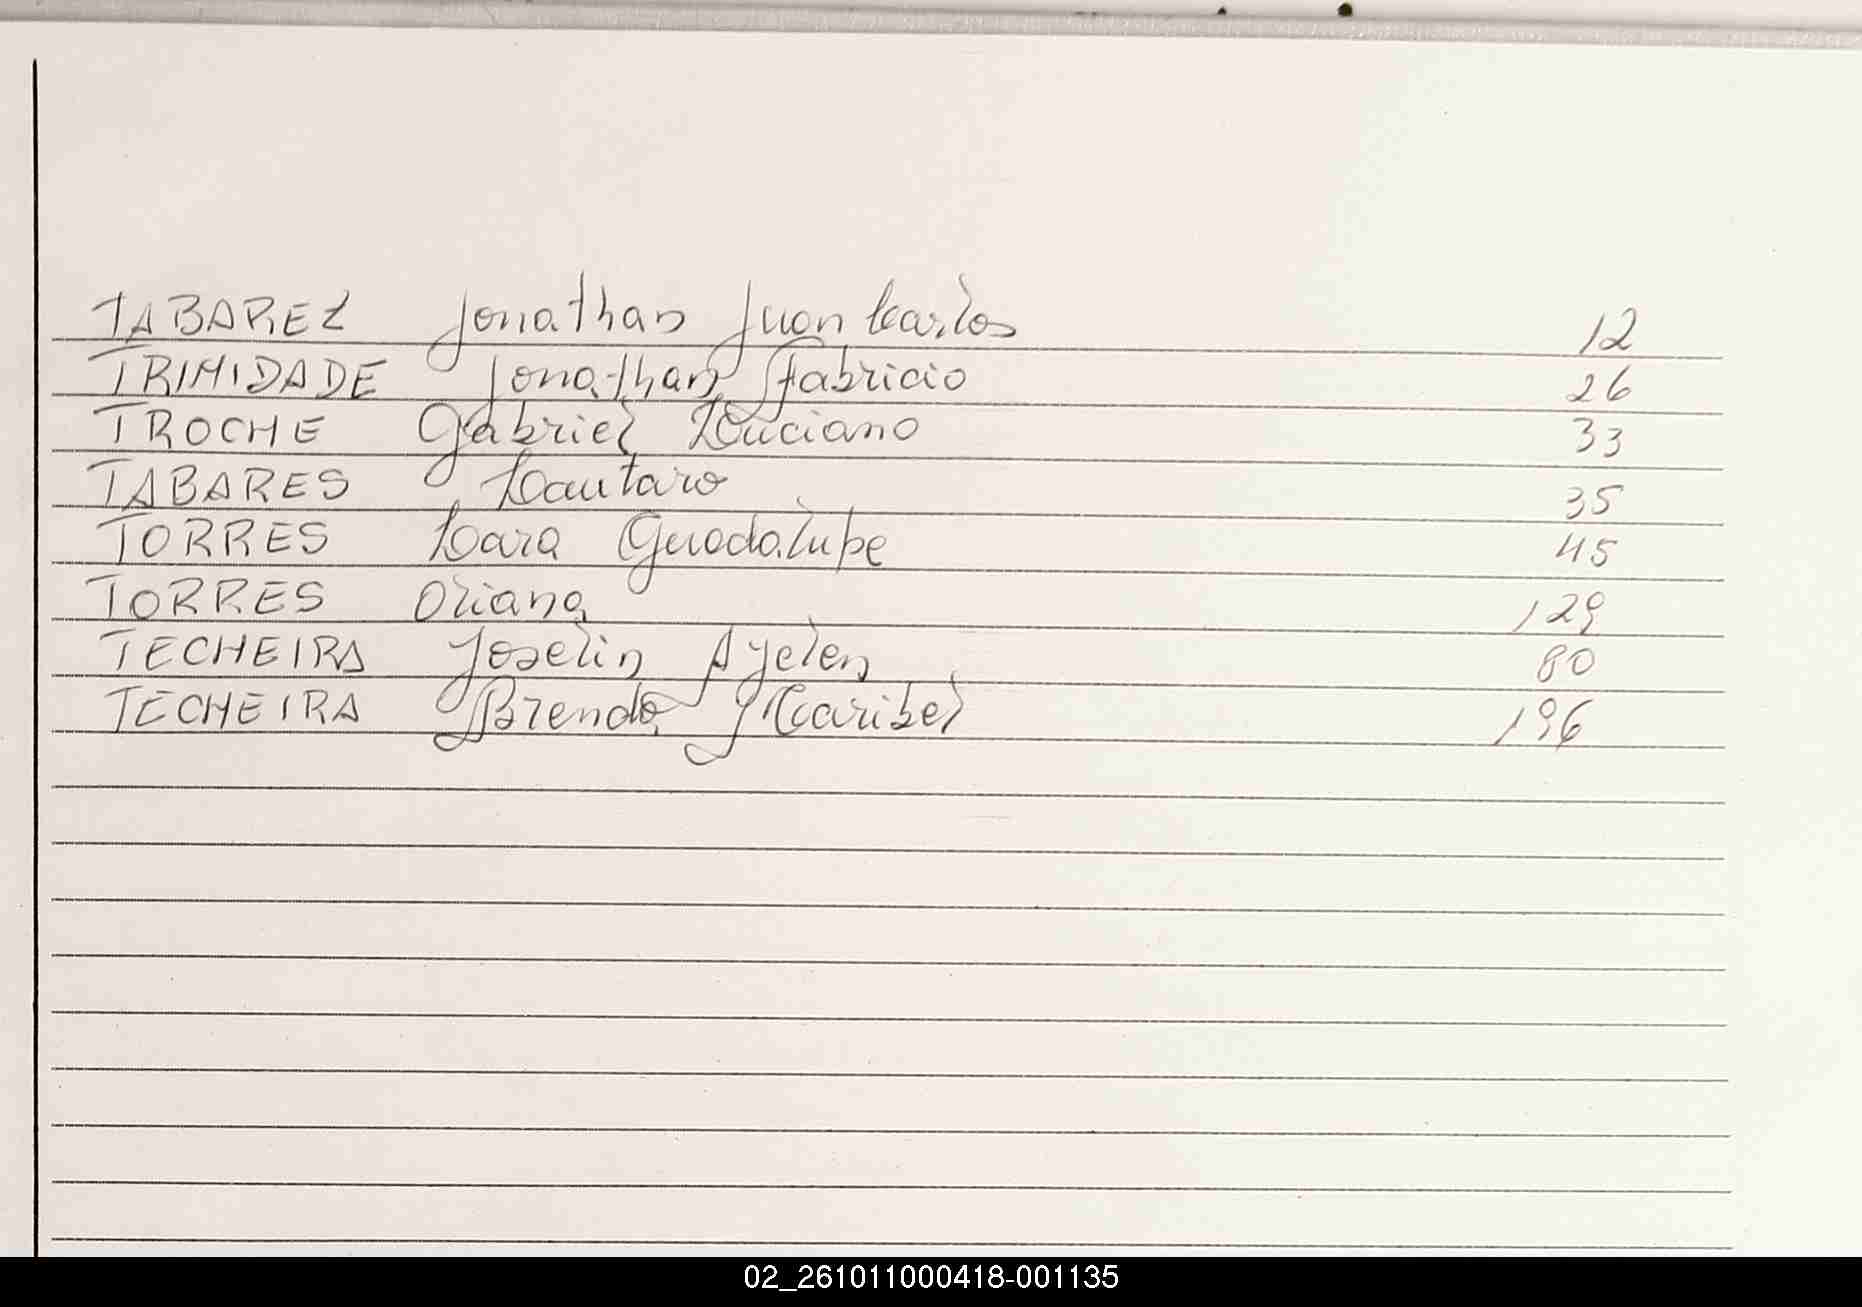 TABAREZ Jonathan Juan Carlos 12
TRINIDADE Jonathan Fabricio 26
TROCHE Gabriel Luciano 33
TABARES Lautaro 35
TORRES Lara Guadalupe 45
TORRES Oriana 129
TECHEIRA Joselin Ayelen 80
TECHEIRA Brenda Maribel 196
02_261011000418-001135